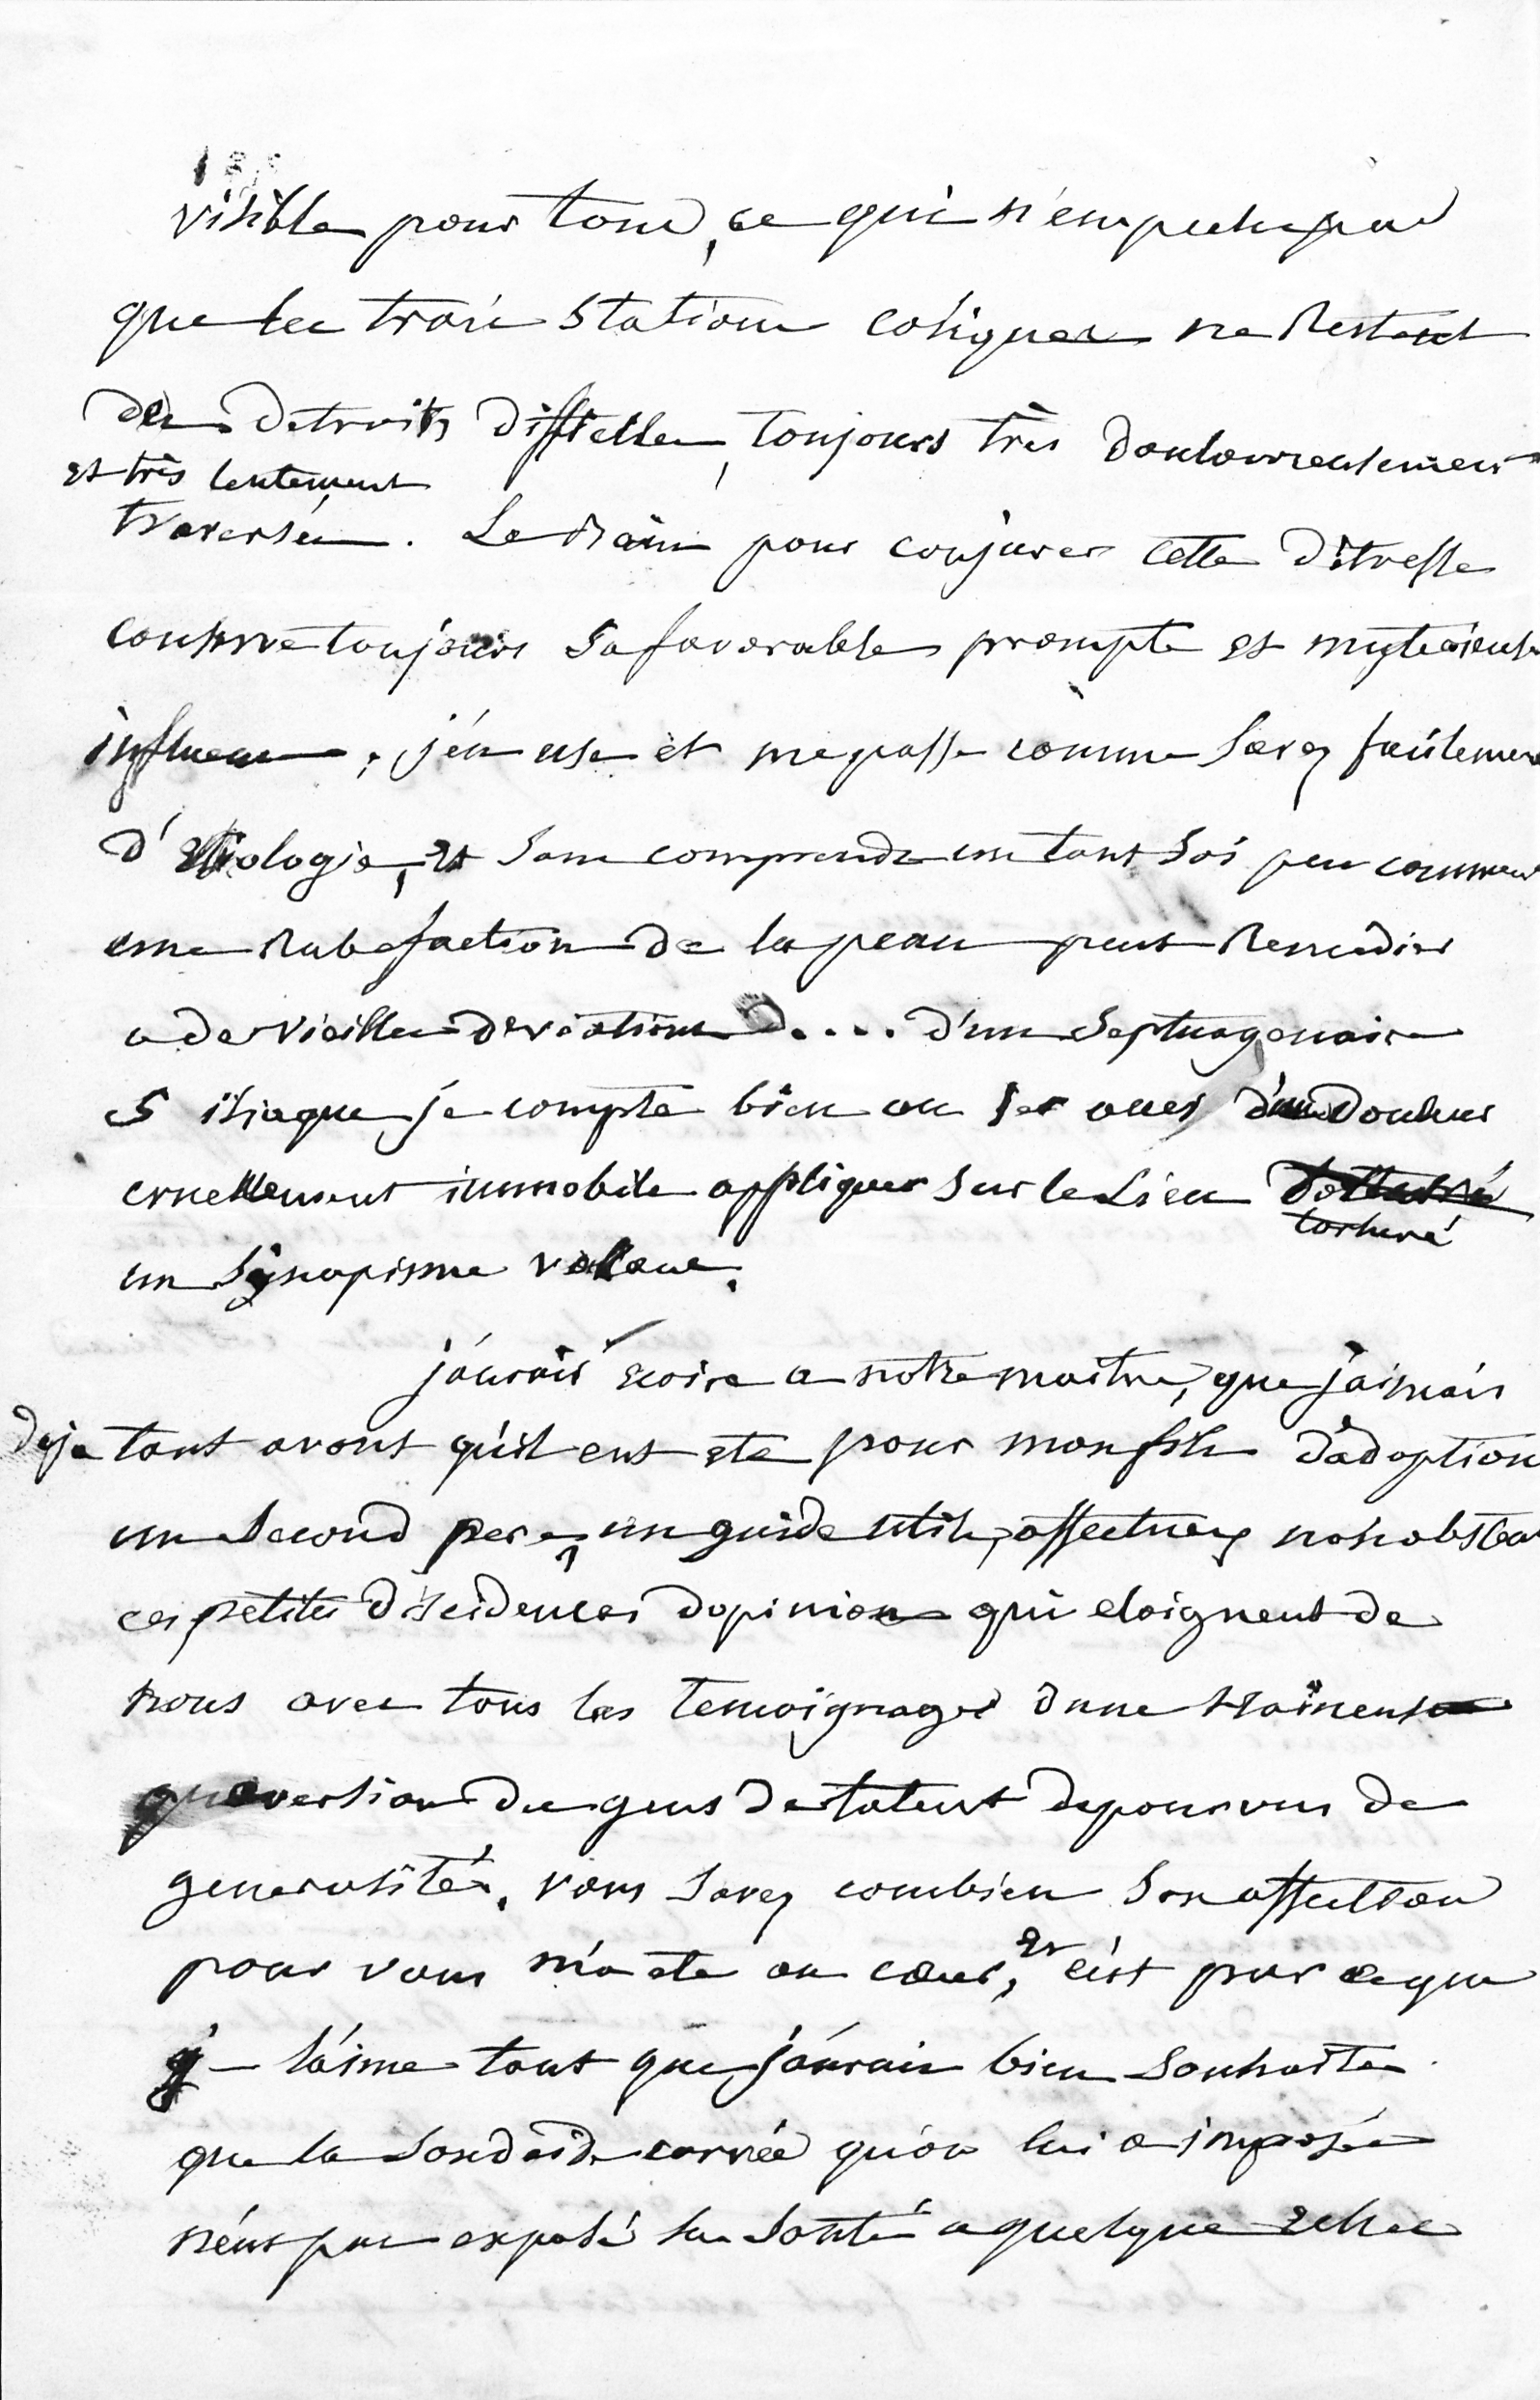 visible pour tous, ce qui n'empeche pas
que les trois stations coliques ne Restent
des Detroits difficiles, toujours très douloureusement
et très lentement
traversés. Le Raim pour conjurer cette ditresse
conserve toujours sa favorable prompte et mysterieuse
influence, j'en use et me passe comme savez facilement
d'Etiologie, et sans comprendre un tant soi peu comment
une Rubefaction de la peau peut Remedier
a de vieilles deviations .... d'un septuagenaire
isiaque je compte bien ou d'une Douleur
cruellement immobile appliquer sur le Lieu
torturé
un synapisme volant.
j'aurais ecrire a notre maitre, que j'aimais
deja tant avant qu'il eut ete pour mon fils d'adoption
un second pere, un guide utile, affectueux nonobstant
ces petites discidences d'opinion qui eloignent de
nous avec tous les temoignages d'une Haineuse
aversion des gens de talent depourvus de
generosité. vous savez combien son affection
pour vous m'a ete au coeur, et c'est parceque
je l'aime tant que j'aurais bien souhaite
que la sordide corvée qu'on lui a imposée
n'eut pas exposé sa santé a quelque echec